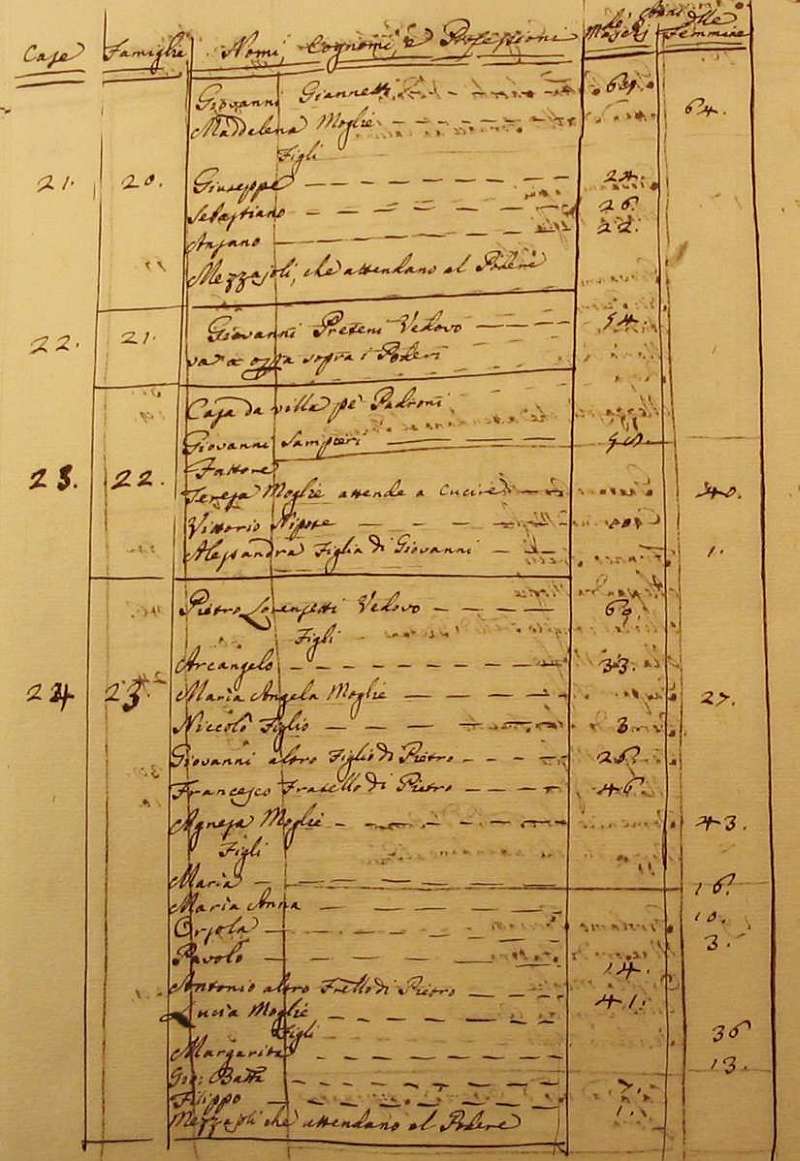 Case Famiglie Nomi, Cognomi, e Professioni Maschj Femmine
Giovanni Giannetti
Maddalena Moglie — — — — 64.
Figli
21. 20. Giuseppe — — — — — — 24.
Sebastiano — — — — — — 26.
Ansano — — — — — — 22.
Mezzajoli, che attendano al Podere
22. 21. Giovanni Preteni Vedovo — — — 54.
opra sopra i Poderi
Casa da villa pe' Padroni
Giovanni Sampieri — — —
23. 22. Fattore
Teresa Moglie attende a cucire — — 40.
Vittorio Nipote — — — —
Alessandra Figlia di Giovanni — — 1.
Pietro Lorenzetti Vedovo — — — — 69.
Figli
Arcangelo — — — — — — — — 33.
24 23. Maria Angela Moglie — — — — 27.
Niccolò Figlio — — — — — 3.
Giovanni altro Figlio di Pietro — — — — 26.
Francesco Fratello di Pietro — — — — 46.
Agnesa Moglie — — — — — — 43.
Figli
Maria — — — — — — 16.
Maria Anna — — — — — 10.
Orsola — — — — — — 3.
Pavolo — — — — — — 14.
Antonio altro Frello di Pietro — — — 41.
Lucia Moglie — — — — — — 36
Figli
Margarita — — — — — — 13.
Gio: Batta — — — — — — 7.
Filippo — — — — — — 1.
Mezzajoli che attendano al Podere